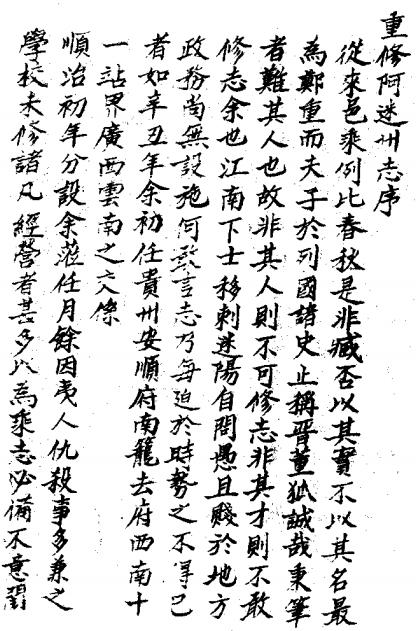 重修阿迷州志序
從來邑乘例比春秋是非臧否以其實不以其名最
為鄭重而夫子於列國諸史止稱晋董狐誠哉秉筆
者難其人也故非其人則不可修志非其才則不敢
修志余也江南下士移刺迷陽自問愚且賤於地方
政務尚無設施何敢言志乃每迫於時勢之不得已
者如辛丑年余初任貴州安順府南籠去府西南十
一站界廣西雲南之交係
順治初年分設余蒞任月餘因夷人仇殺事多兼之
學校未修諸凡經營者甚多以為乘志必備不意閱